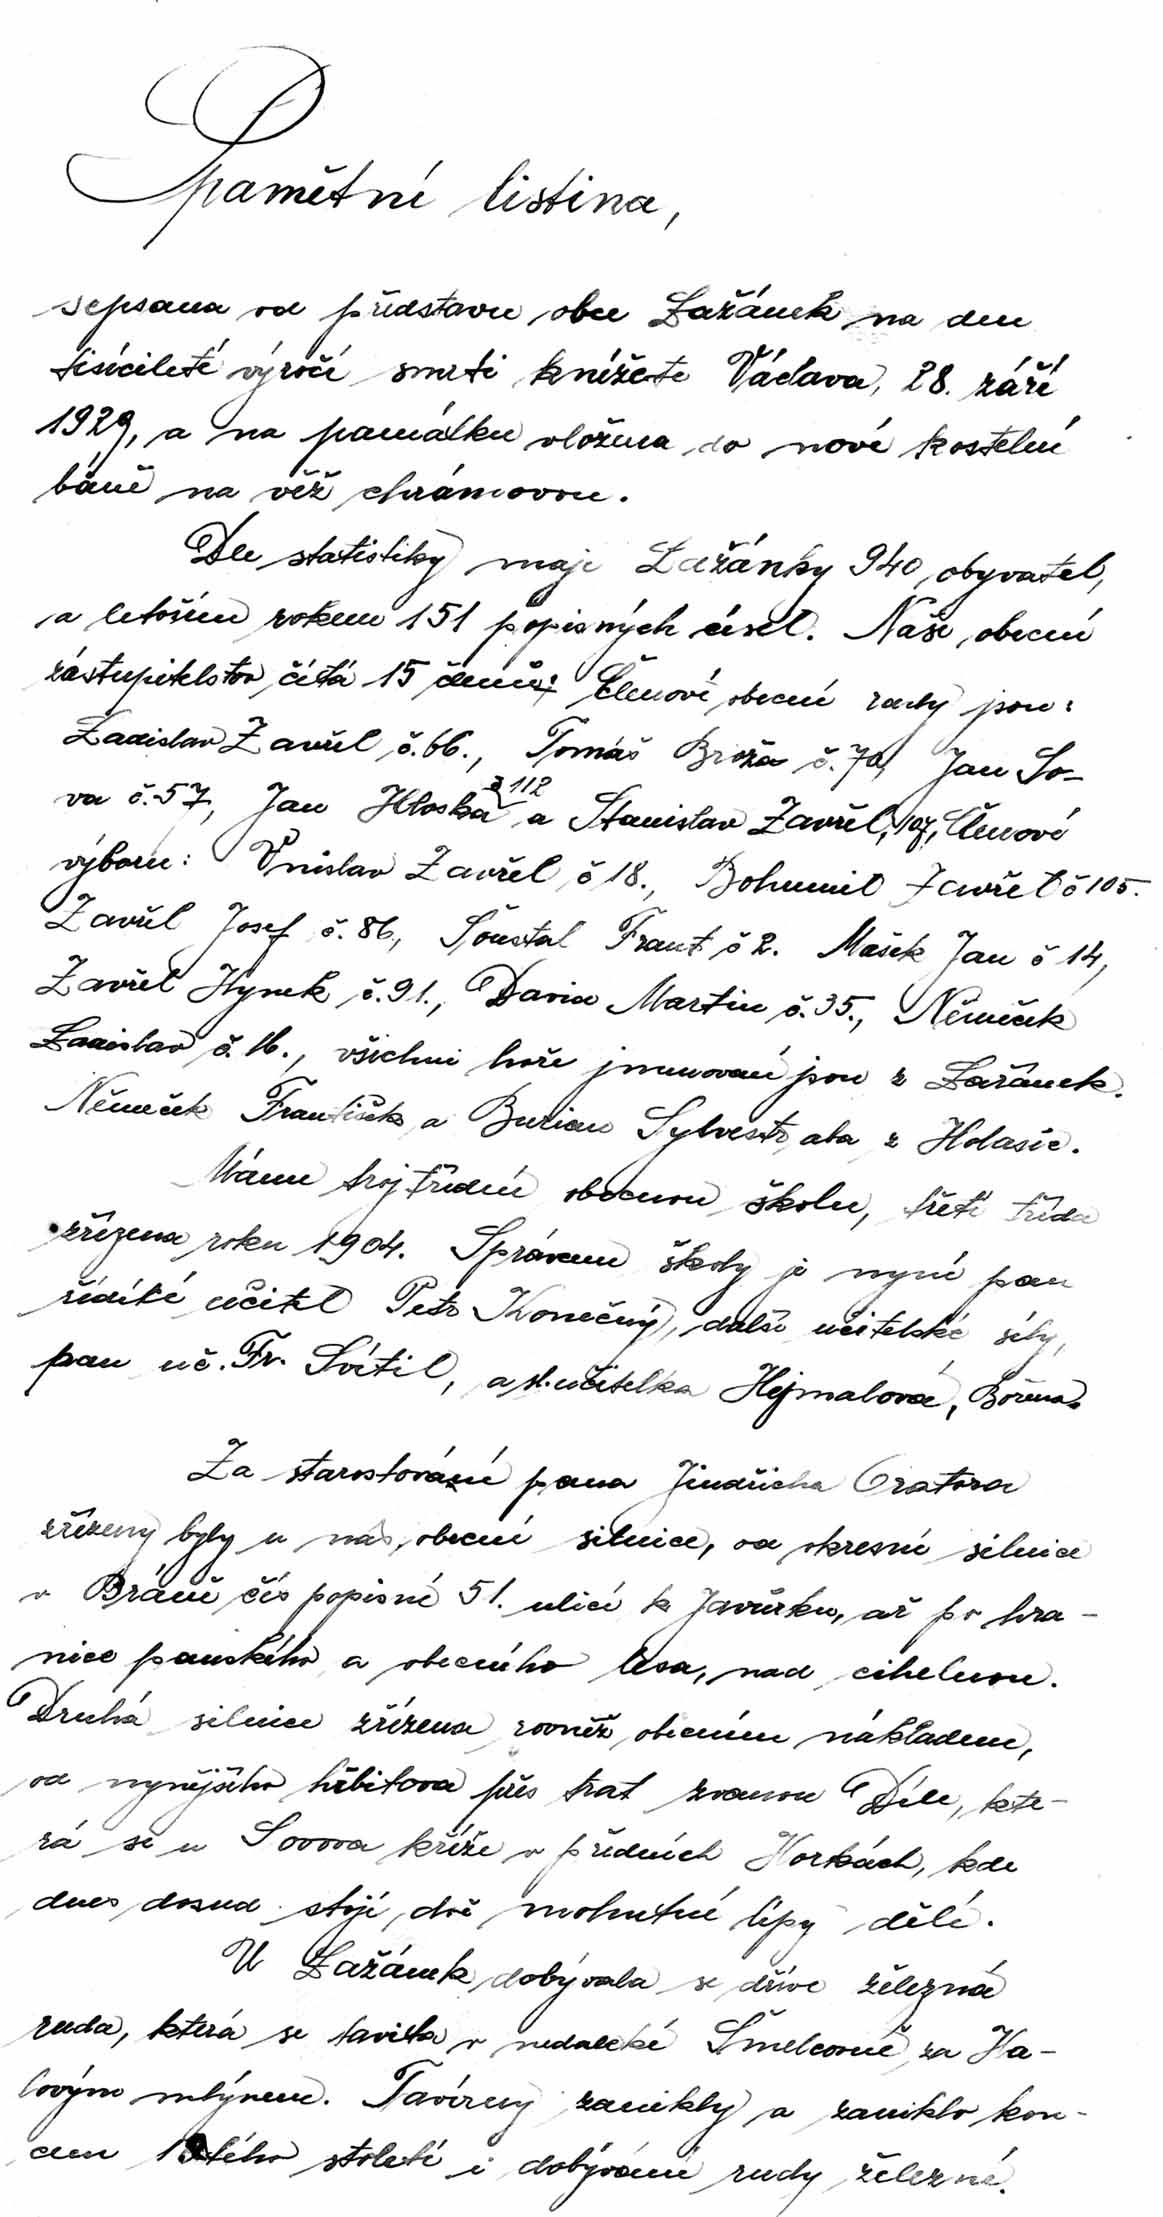 Pamětní listina,
sepsana od představu obce Lažánek na den
tisícileté výročí smrti knížete Václava, 28. září
1929, a na památku vložena do nové kostelní
báně na věž chrámovou.
Dle statistiky maji Lažánky 940 obyvatel,
a letošim rokem 151 popisných čísel. Naše obecní
zástupitelstvo čítá 15 členů: Členové obecní rady jsou:
Ladislav Zavřel č.66., Tomáš Broža č.70, Jan So-
va č.57, Jan Hloska č 112 a Stanislav Zavřel, 107, Členové
výboru: Vnislav Zavřel č 18., Bohumil Zavřel č 105.
Zavřel Josef č.86, Šoustal Frant č 2. Mašek Jan č 14,
Zavřel Hynek č.91., David Martin č.35., Němeček
Ladislav č.16., všichni hoře jmenovaní jsou z Lažánek.
Němeček František a Burian Sylvestr, oba z Holasic.
Máme trojtřídní obecnou školu, třetí třída
zřízena roku 1904. Správcem školy je nyní pan
řídící učitel Petr Konečný, další učitelské síly,
pan uč. Fr. Svítil, a sl. učitelka Hejmalová, Božena.
Za starostování pana Jindřicha Oratora
zřízeny byly u nás, obecní silnice, od okresní silnice
v Bráně čís popisné 51. ulicí k Javůrku, až po hra-
nice panského a obecního lesa, nad cihelnou.
Druhá silnice zřízena rovněž obecním nákladem,
od nynějšího hřbitova přes trať zvanou Díle, kte-
rá se u Sovova kříže v předních Horkách, kde
dnes dosud stojí, dvě mohutné lípy dělí.
U Lažánek dobývala se dříve železná
ruda, která se tavila v nedaleké Šmelcovně za Ha-
lovým mlýnem. Tavírny zanikly a zaniklo kon-
cem tého století i dobývání rudy železné.